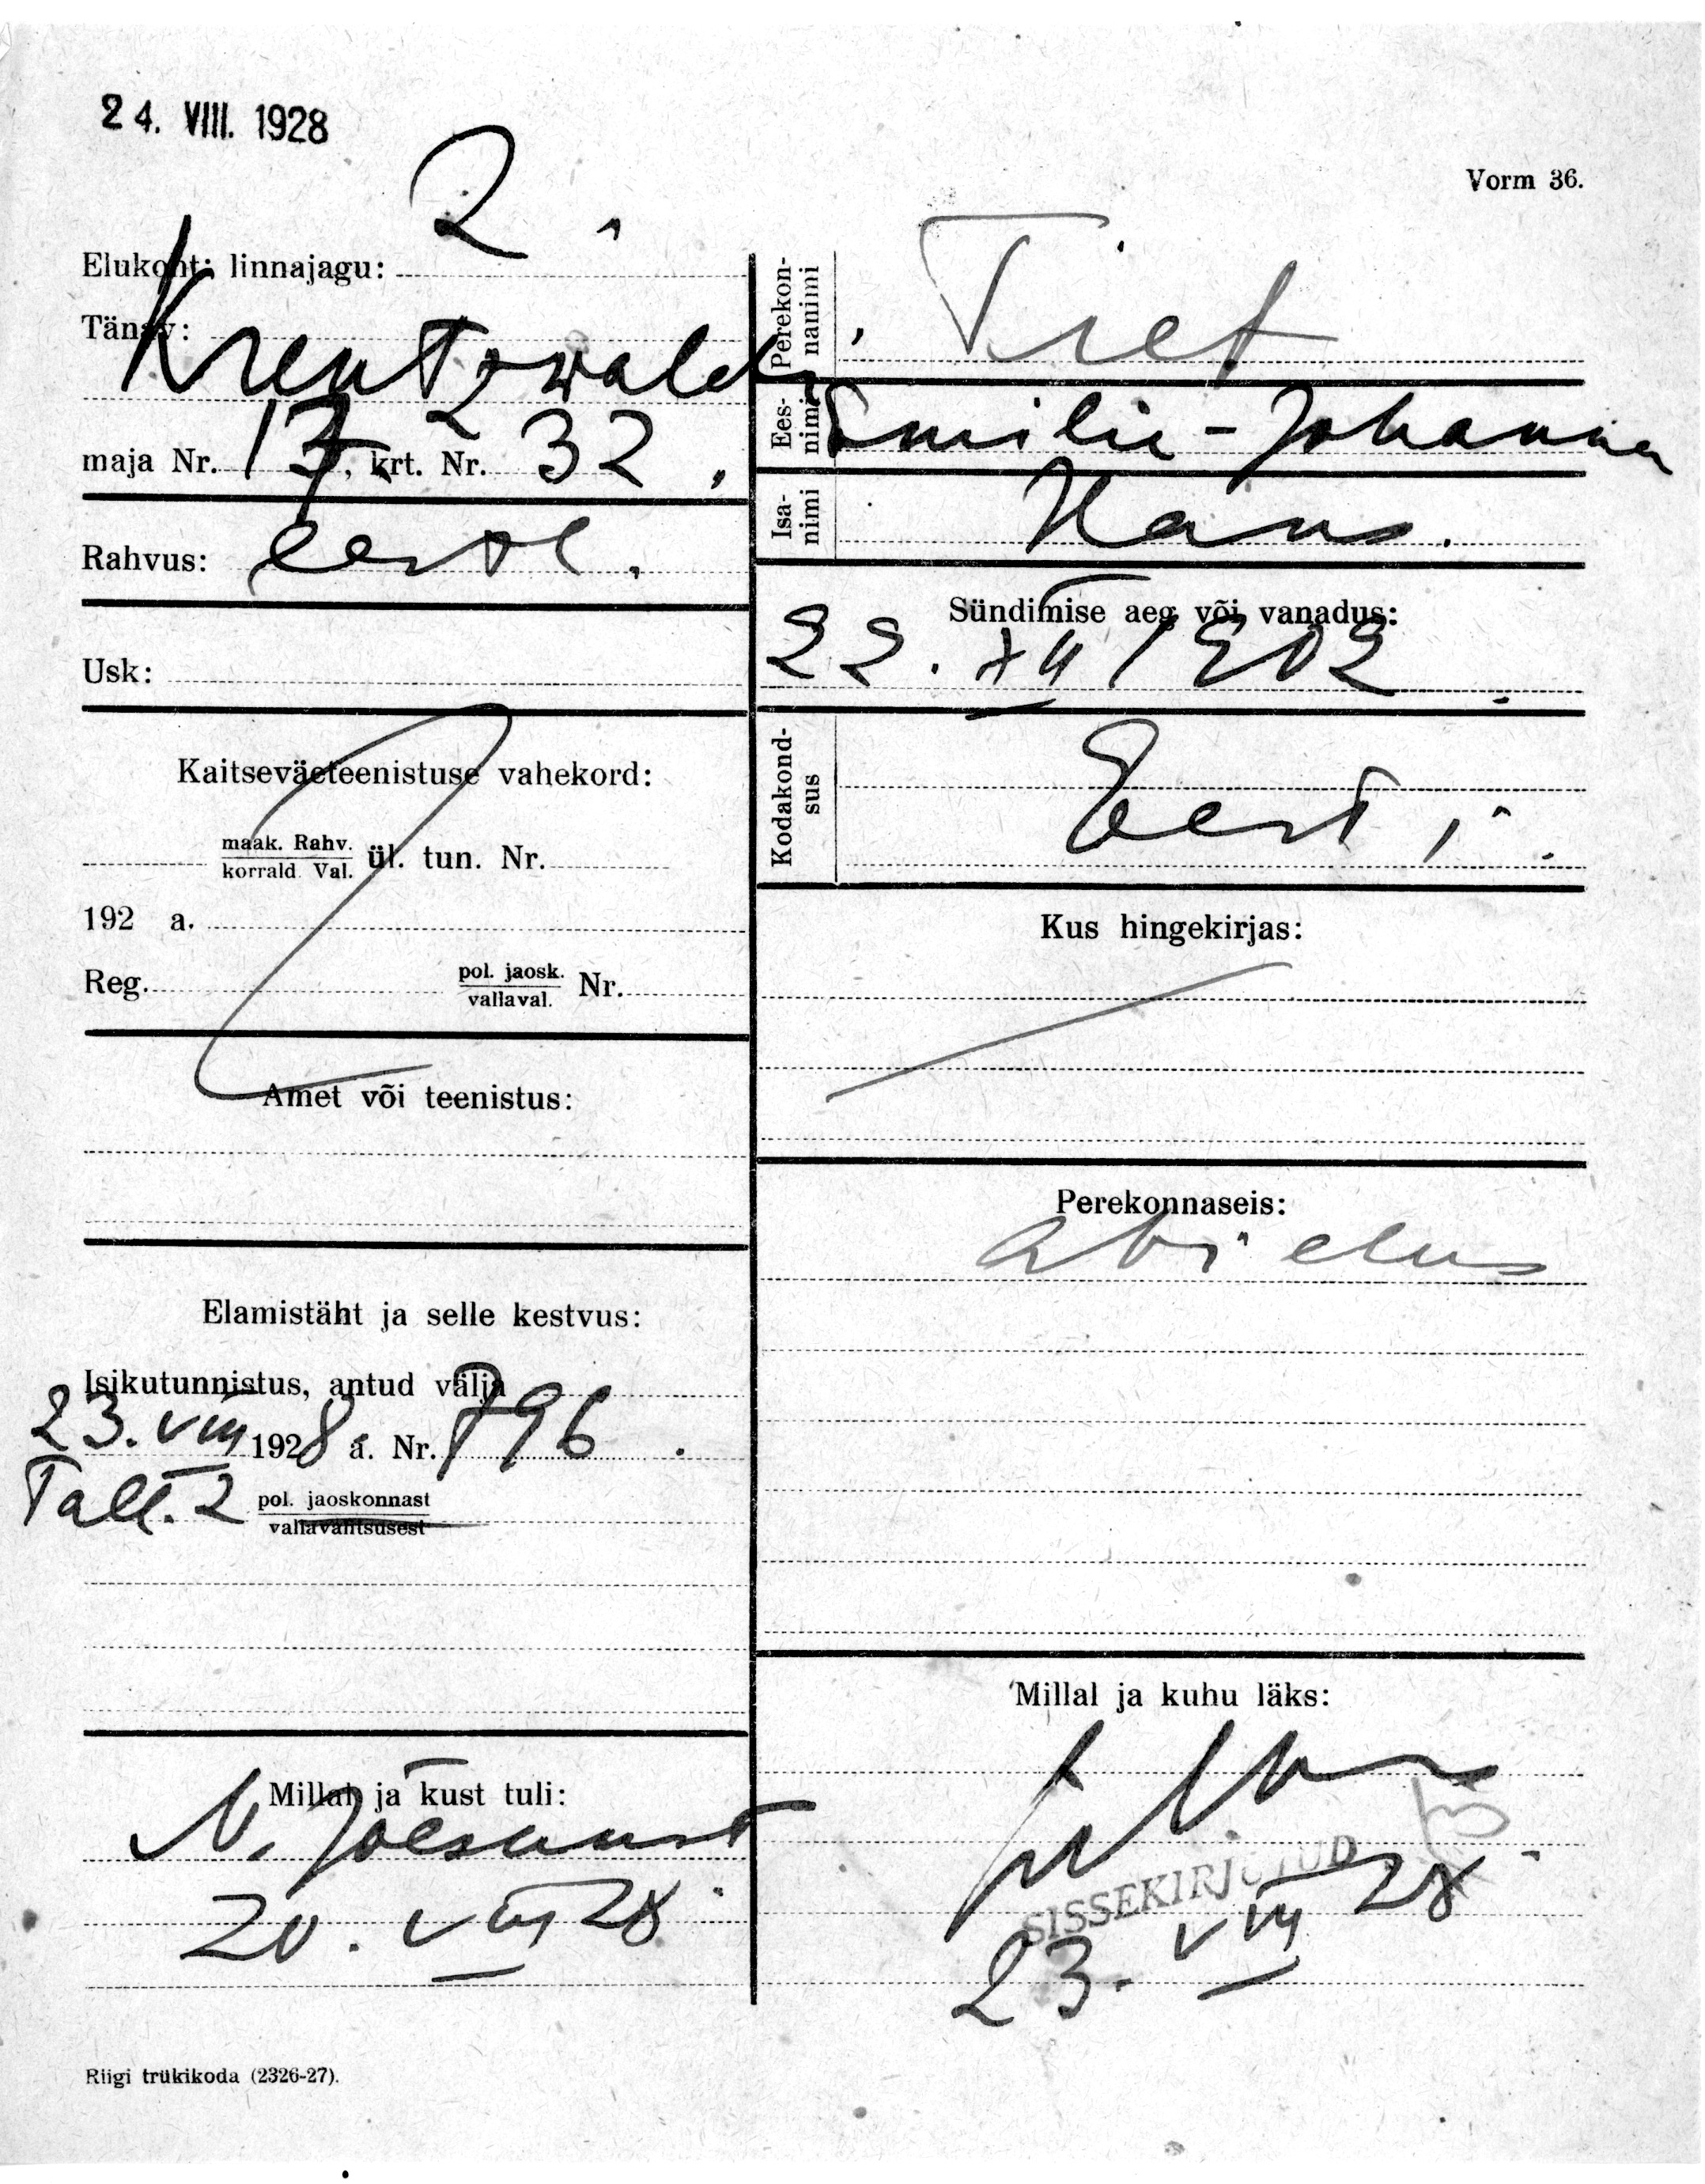 24. VIII. 1928
Vorm 36.
Elukoht: linnajagu: 2
Tänav: Kreutzwaldi
maja Nr. 17, krt. Nr. 32.
Rahvus: eestl.
Usk:
Kaitseväeteenistuse vahekord:
maak. Rahv.
korrald. Val. ül. tun. Nr.
192 a.
Reg. pol. jaosk.
vallaval. Nr.
Amet või teenistus:
Elamistäht ja selle kestvus:
Isikutunnistus, antud välja
23. VIII 1928 a. Nr. 796.
Tall. 2 pol. jaoskonnast
vallavalitsusest
Millal ja kust tuli:
N. Jõesuust
20. VIII 28
Perekonnanimi Tiet
Eesnimi Emilie-Johanna
Isanimi Hans.
Sündimise aeg või vanadus:
22. XII 1902.
Kodakondsus Eesti.
Kus hingekirjas:
Perekonnaseis:
abielus
Millal ja kuhu läks:
SISSEKIRJUTUD
23. VIII 28
Riigi trükikoda (2326-27).